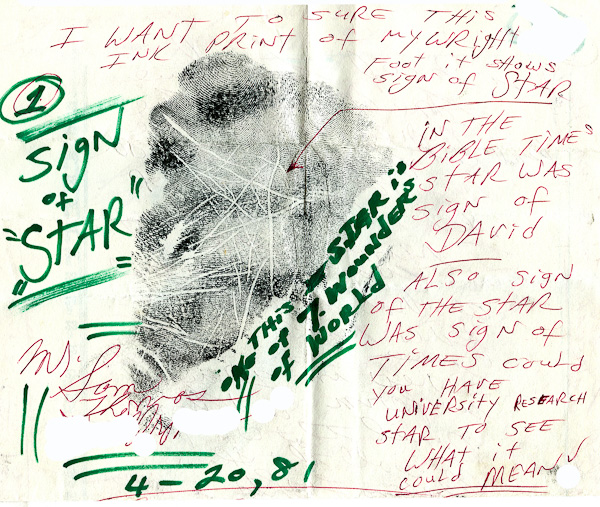 I WANT TO SURE THIS
INK PRINT OF MY WRIGHT
FOOT iT SHOWS
SiGN OF STAR
1
SigN
of
"STAR"
iN THE
BIBLE TIMES
STAR WAS
SigN OF
DAViD
THIS STAR is
ONE OF 7. WOUNDERS
OF WORLD
ALSO SIGN
OF THE STAR
WAS SIGN OF
TIMES COULD
YOU HAVE
UNIVERSITY RESEARCH
STAR TO SEE
WHAT iT
COULD MEAN
Sam
4-20,81